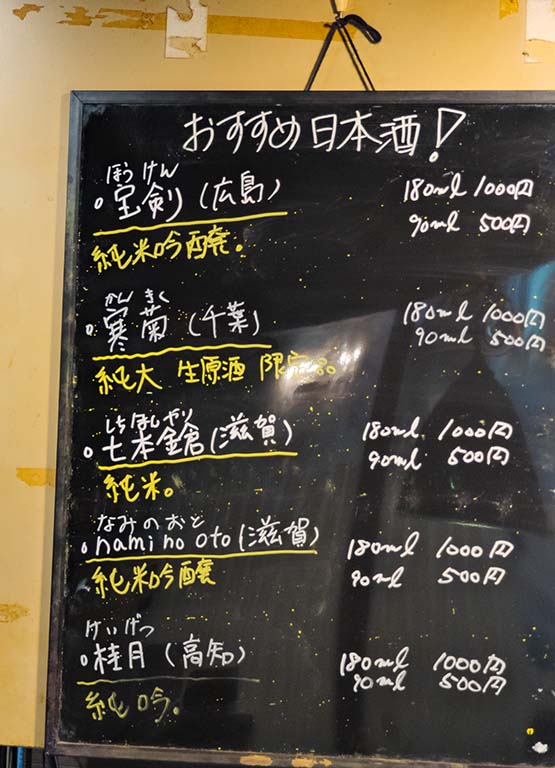 おすすめ日本酒!
ほうけん
宝剣(広島) 180ml 1000円
純米吟醸。 90ml 500円
かんきく
寒菊(千葉) 180ml 1000円
90ml 500円
純大 生原酒 限定品
しちほんやり
七本鎗(滋賀) 180ml 1000円
90ml 500円
純米。
なみのおと
naminooto(滋賀) 180ml 1000円
純米吟醸 90ml 500円
けいげつ
桂月(高知) 180ml 1000円
90ml 500円
純吟。